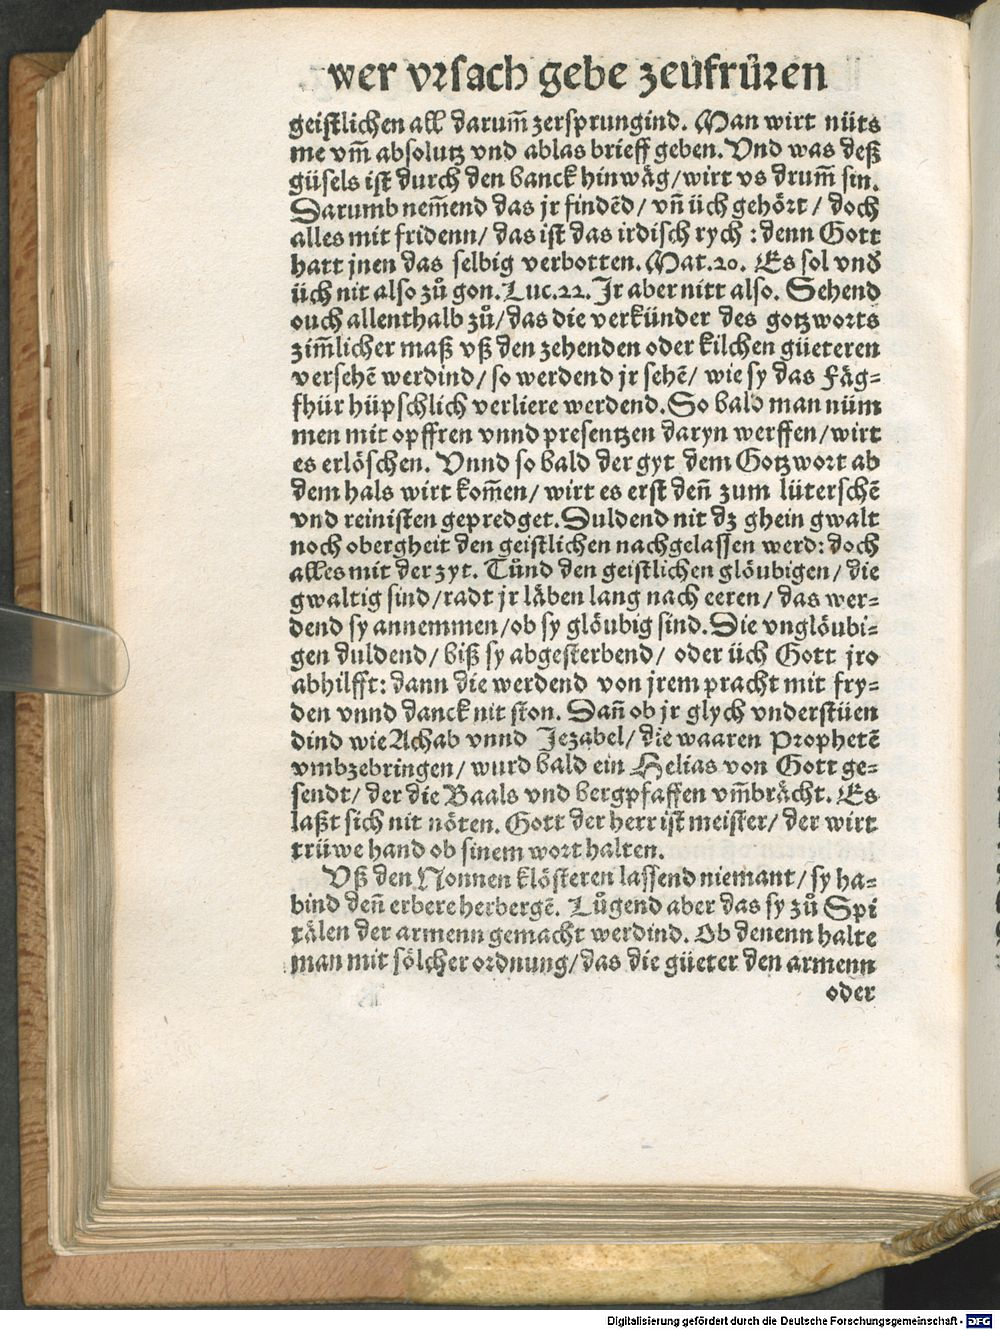 wer vrſach gebe zeufrůren
geiſtlichen all darum̃ zerſprungind. Man wirt nüts
me vm̃ abſolutz vnd ablas brieff geben. Vnd was deß
güſels iſt durch den banck hinwäg/ wirt vs drum̃ ſin.
Darumb nem̃end das jr findẽd/ vñ üch gehört/ doch
alles mit fridenn/ das iſt das irdiſch rych : denn Gott
hatt jnen das ſelbig verbotten. Mat.20. Es ſol vnd
üch nit alſo zů gon. Luc.22. Ir aber nitt alſo. Sehend
ouch allenthalb zů/ das die verkünder des gotzworts
zim̃licher maß vß den zehenden oder kilchen güeteren
verſehẽ werdind/ ſo werdend jr ſehẽ/ wie ſy das Fäg-
fhür hüpſchlich verliere werdend. So bald man nüm
men mit opffren vnnd preſentzen daryn werffen/ wirt
es erlöſchen. Vnnd ſo bald der gyt dem Gotzwort ab
dem hals wirt kom̃en/ wirt es erſt deñ zum lüterſchẽ
vnd reiniſten gepredget. Duldend nit dz ghein gwalt
noch obergheit den geiſtlichen nachgelaſſen werd: doch
alles mit der zyt. Tůnd den geiſtlichen glöubigen/ die
gwaltig ſind/ radt jr läben lang nach eeren/ das wer-
dend ſy annemmen/ ob ſy glöubig ſind. Die vnglöubi-
gen duldend/ biß ſy abgeſterbend/ oder üch Gott jro
abhilfft: dann die werdend von jrem pracht mit fry-
den vnnd danck nit ſton. Dañ ob jr glych vnderſtüen
dind wie Achab vnnd Jezabel/ die waaren Prophetẽ
vmbzebringen/ wurd bald ein Helias von Gott ge-
ſendt/ der die Baals vnd bergpfaffen vm̃brächt. Es
laßt ſich nit nöten. Gott der herr iſt meiſter/ der wirt
trüwe hand ob ſinem wort halten.
Vß den Nonnen klöſteren laſſend niemant/ ſy ha-
bind deñ erbere herbergẽ. Lůgend aber das ſy zů Spi
tälen der armenn gemacht werdind. Ob denenn halte
man mit ſölcher ordnung/ das die güeter den armenn
oder
Digitalisierung gefördert durch die Deutsche Forschungsgemeinschaft - DFG